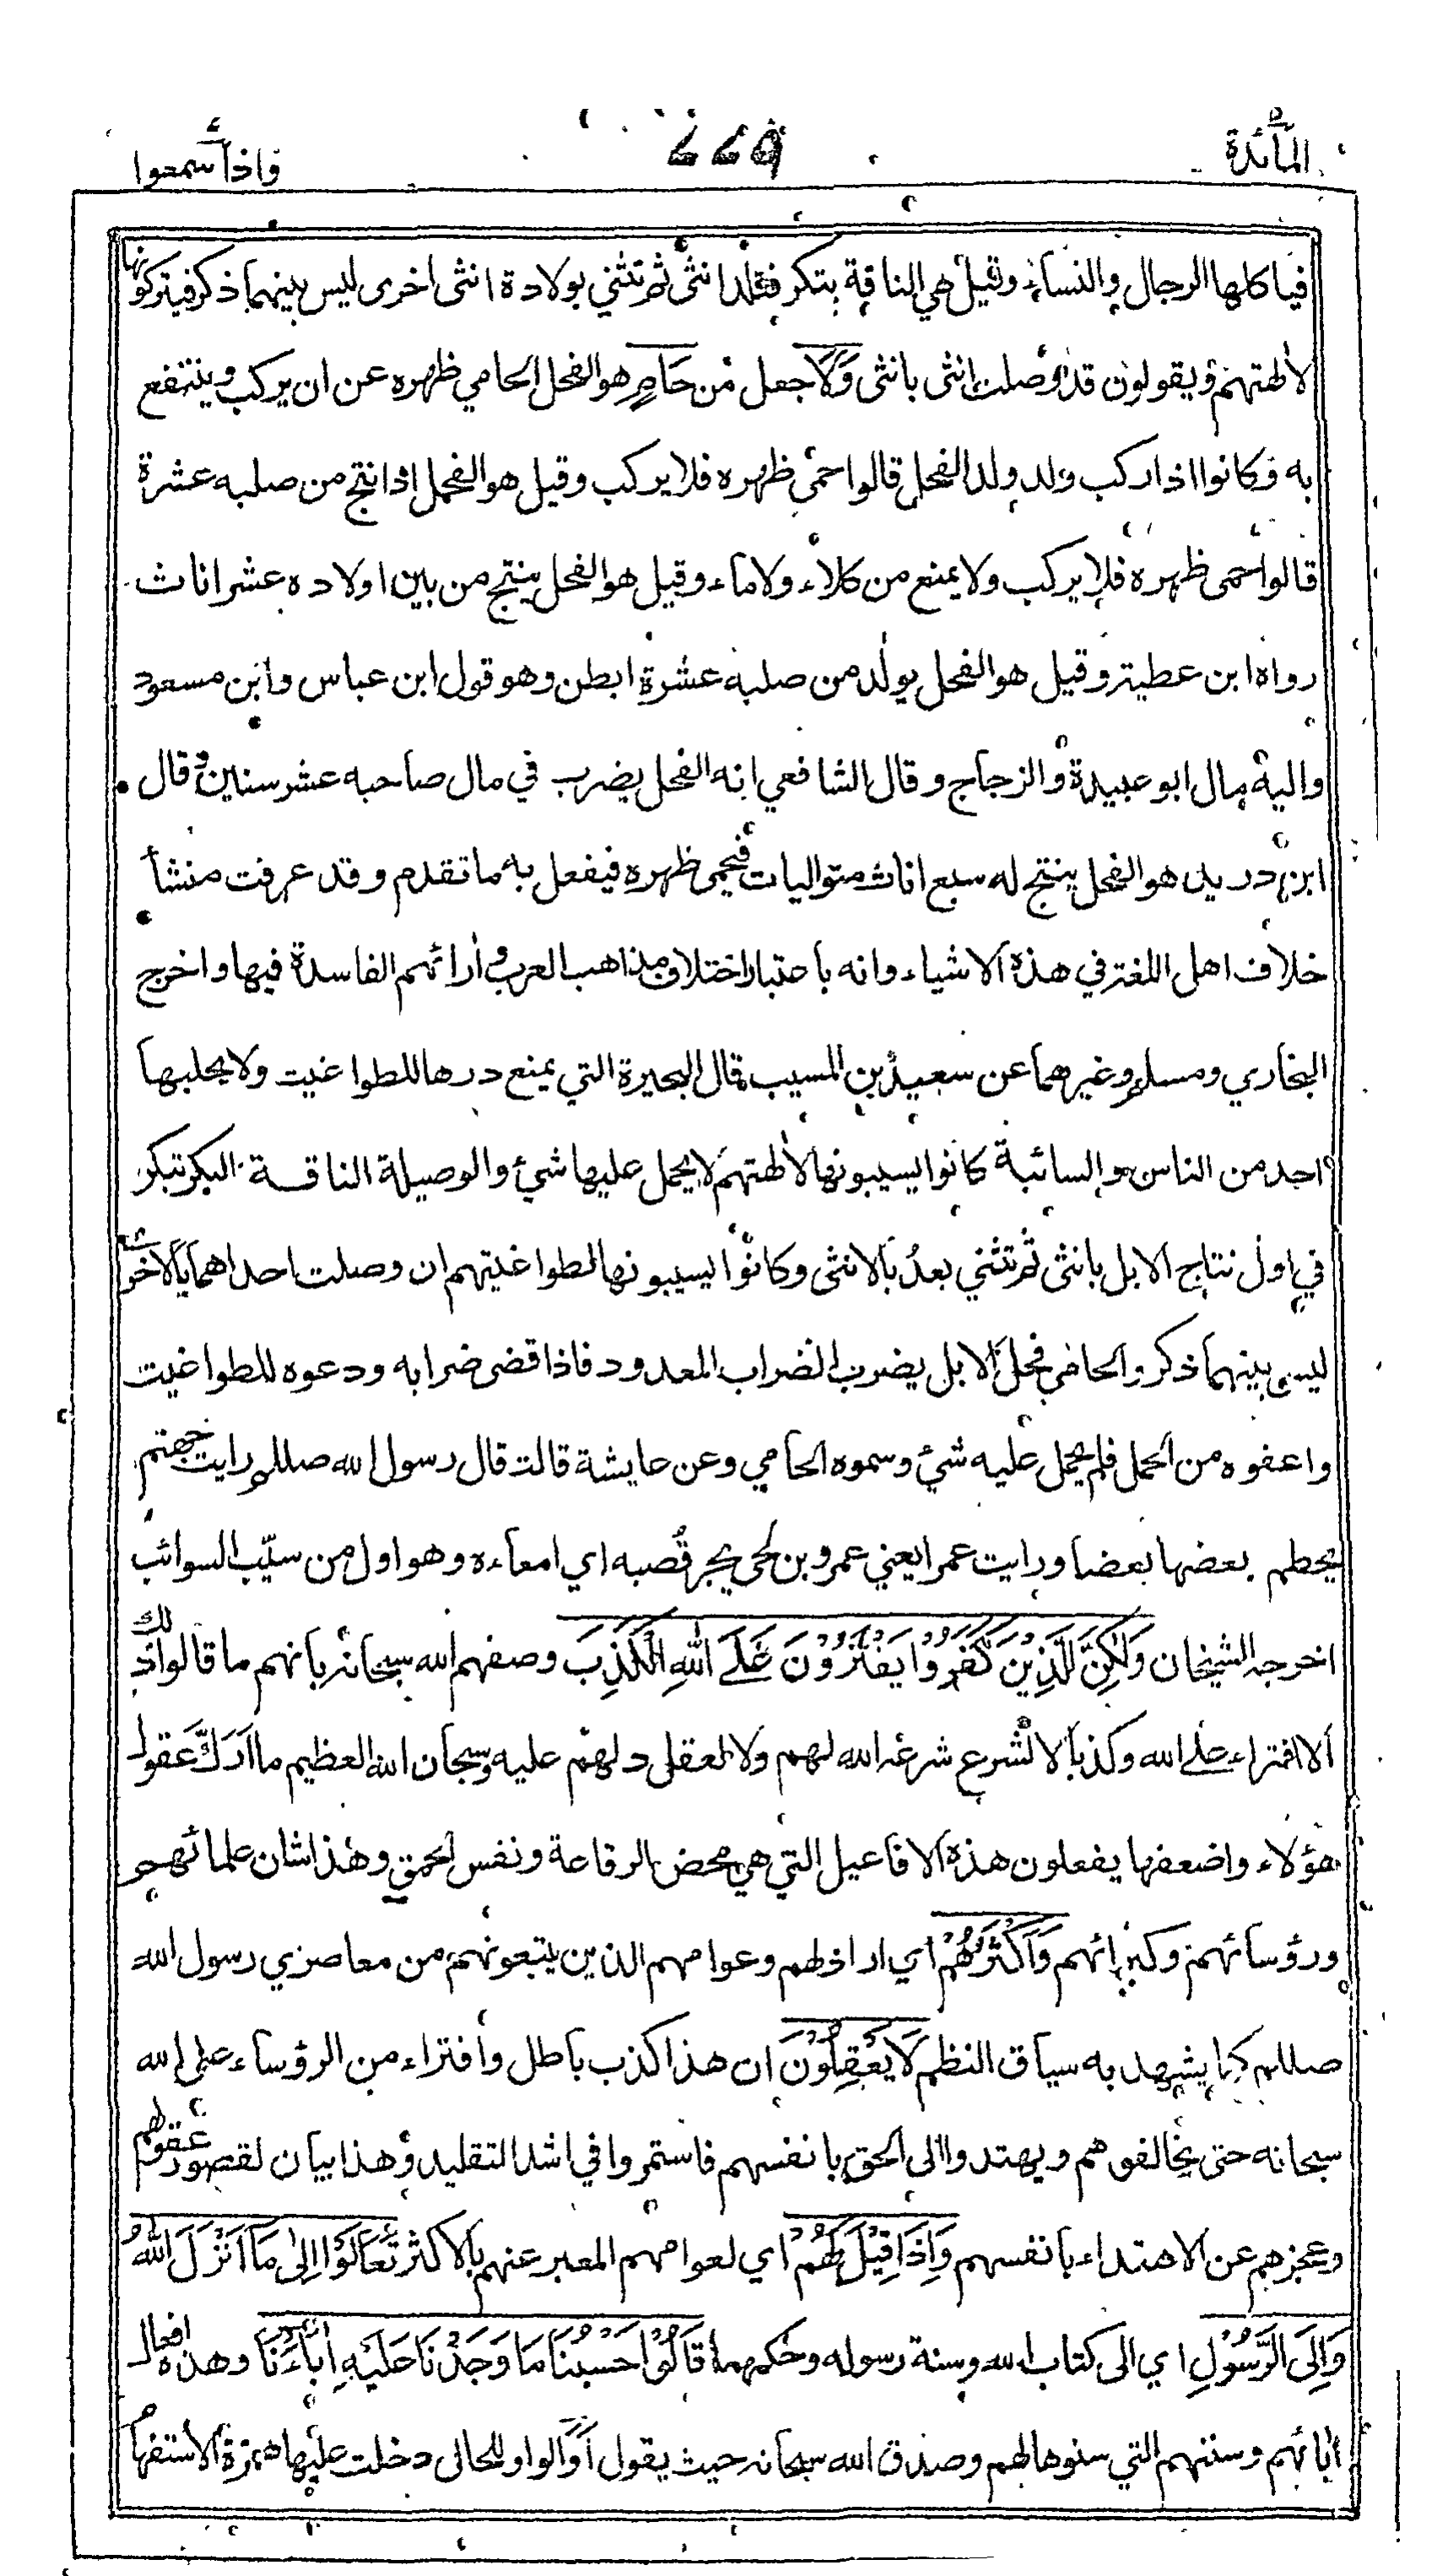 المآئدة
واذا سمعوا
فياكلها الرجال والنساء وقيل هي الناقة بتكر فتلد انثى ثم تثني بولادة انثى اخرى ليس بينهما ذكر فيتركونها
لالهتهم ويقولون قد وصلت انثى بانثى وَّلَا جعل من حَامٍ هو الفحل الحامي ظهره عن ان يركب وينتفع
به وكانوا اذا ركب ولد ولد الفحل قالوا حمى ظهره فلا يركب وقيل هو الفحل اذا نتج من صلبه عشرة
قالوا حمى ظهره فلا يركب ولا يمنع من كلاء ولا ماء وقيل هو الفحل ينتج من بين اولاده عشر اناث
رواه ابن عطية وقيل هو الفحل يولد من صلبه عشرة ابطن وهو قول ابن عباس وابن مسعود
واليه مال ابو عبيدة والزجاج وقال الشافعي انه الفحل يضرب في مال صاحبه عشر سنين وقال
ابن دريد هو الفحل ينتج له سبع اناث متواليات فيحمى ظهره فيفعل به ما تقدم وقد عرفت منشأ
خلاف اهل اللغة في هذه الاشياء وانه باعتبار اختلاف مذاهب العرب وارائهم الفاسدة فيها واخرج
البخاري ومسلم وغيرهما عن سعيد بن المسيب قال البحيرة التي يمنع درها للطواغيت ولا يحلبها
احد من الناس والسائبة كانوا يسيبونها لالهتهم لا يحمل عليها شيء والوصيلة الناقة البكر تبكر
في اول نتاج الابل بانثى ثم تثني بعد بالانثى وكانوا يسيبونها لطواغيتهم ان وصلت احداهما بالاخرى
ليس بينهما ذكر والحامي فحل الابل يضرب الضراب المعدود فاذا قضى ضرابه ودعوه للطواغيت
واعفوه من الحمل فلم يحمل عليه شيء وسموه الحامي وعن عايشة قالت قال رسول الله صللم رايت جهنم
يحطم بعضها بعضا ورايت عمرا يعني عمرو بن لحى يجر قصبه اي امعاءه وهو اول من سيّب السوائب
اخرجه الشيخان وَلٰكِنَّ الَّذِيْنَ كَفَرُوْا يَفْتَرُوْنَ عَلَى اللّٰهِ الْكَذِبَ وصفهم الله سبحانه بانهم ما قالوا ذلك
الا افتراء على الله وكذبا لا لشرع شرعه الله لهم ولا لعقل دلهم عليه وسبحان الله العظيم ما ارك عقول
هؤلاء واضعفها يفعلون هذه الافاعيل التي هي محض الرقاعة ونفس الحمق وهذا شان علمائهم
ورؤسائهم وكبرائهم وَاَكْثَرُهُمْ اي اراذلهم وعوامهم الذين يتبعونهم من معاصري رسول الله
صللم كما يشهد به سياق النظم لَا يَعْقِلُوْنَ ان هذا كذب باطل وافتراء من الرؤساء على الله
سبحانه حتى يخالفوهم ويهتدوا الى الحق بانفسهم فاستمروا في اشد التقليد وهذا بيان لقصور عقولهم
وعجزهم عن الاهتداء بانفسهم وَاِذَا قِيْلَ لَهُمْ اي لعوامهم المعبر عنهم بالاكثر تَعَالَوْا اِلٰى مَا اَنْزَلَ اللّٰهُ
وَاِلَى الرَّسُوْلِ اي الى كتاب الله وسنة رسوله وحكمهما قَالُوْا حَسْبُنَا مَا وَجَدْنَا عَلَيْهِ اٰبَاءَنَا وهذه افعال
ابائهم وسننهم التي سنوها لهم وصدق الله سبحانه حيث يقول اَوَلَو الواو للحال دخلت عليها همزة الاستفهام